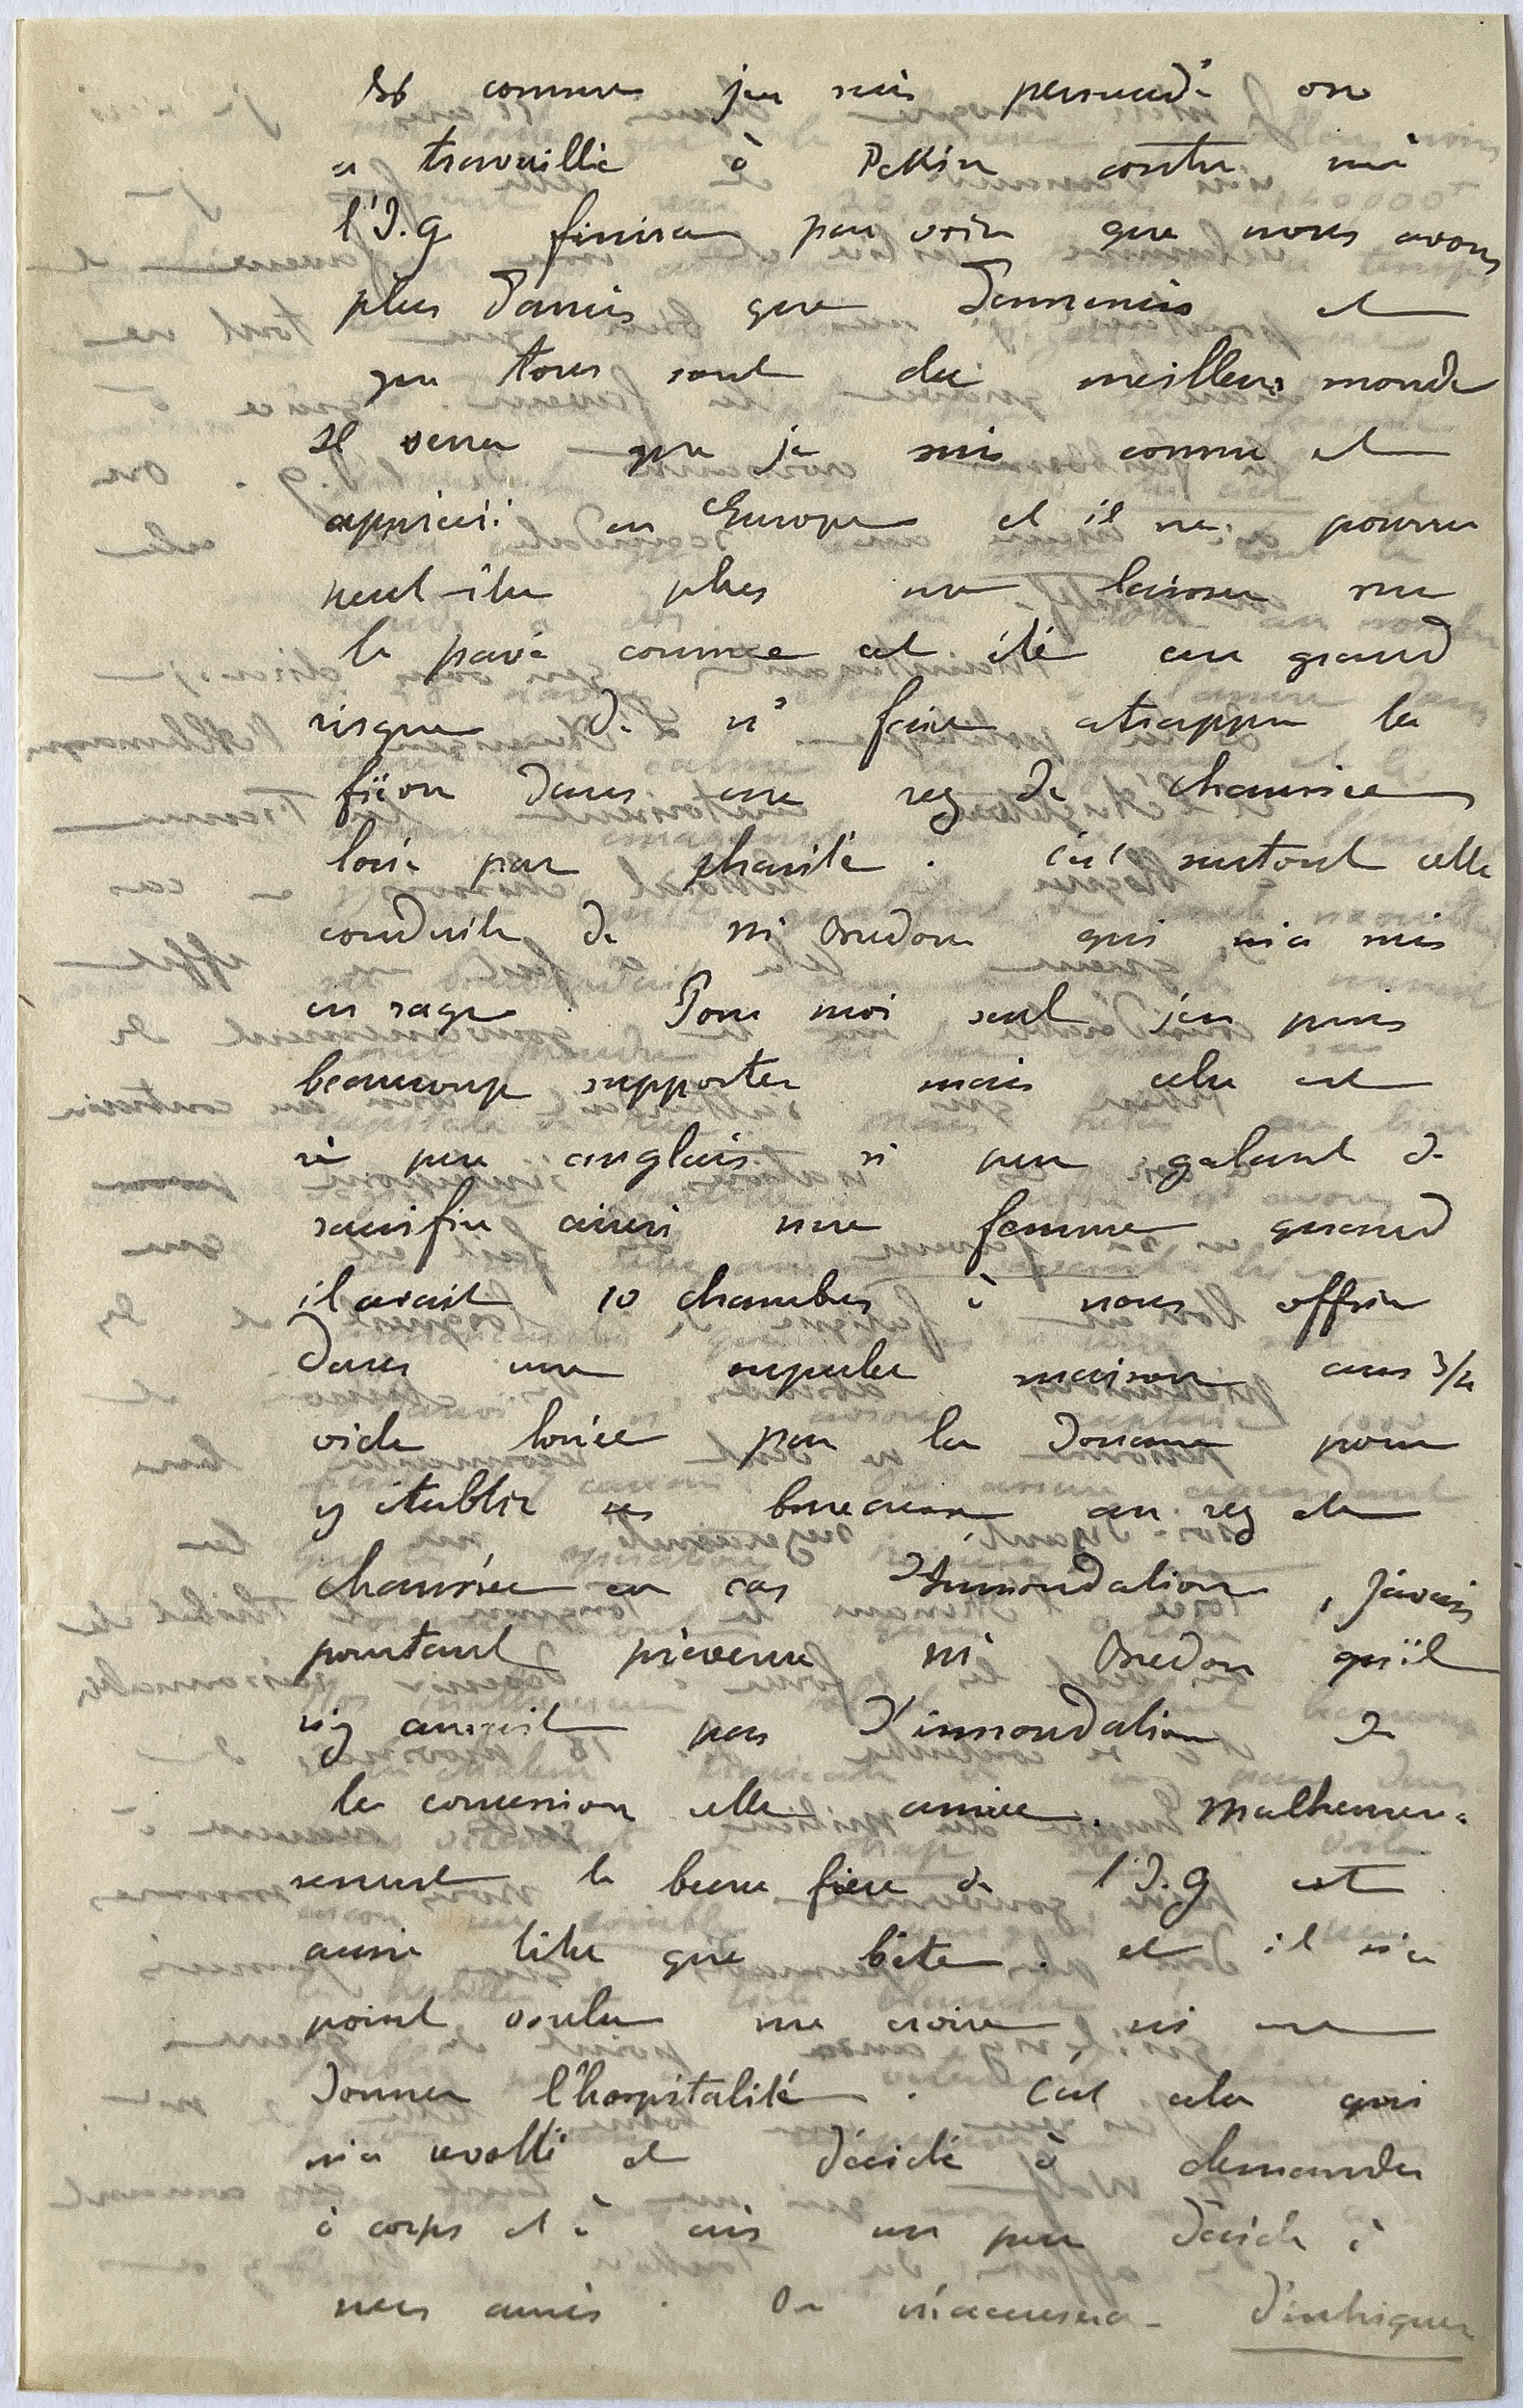 Et comme j'en suis persuadé on
a travaillé à Pekin contre moi
l'I.G finira par voir que nous avons
plus d'amis que d'ennemis et
que tous sont du meilleur monde
Il verra que je suis connu et
apprécié en Europe et il ne pourra
peut-être plus me laisser sur
le pavé comme cet été au grand
risque de m' faire attrapper la
fièvre dans une rez de chaussée
loué par charité. C'est surtout cette
conduite de Mr Bredon qui m'a mis
en rage. Pour moi seul j'en puis
beaucoup supporter mais cela est
si peu anglais si peu galant de
sacrifier ainsi une femme quand
il avait 10 chambres à nous offrir
dans une superbe maison aux 3/4
vide louée par la Douane pour
y établir ses bureaux au rez de
chaussée en cas d'Innondation, J'avais
pourtant prévenu Mr Bredon qu'il
n'y aurait pas d'innondation de
la concession cette année. Malheureu-
sement le beau frère de l'I.G est
aussi têtu que bête. et il n'a
point voulu me croire ni me
donner l'hospitalité. C'est cela qui
m'a revolté et décidé à demander
à corps et à cris un peu d'aide à
nos amis. On m'accusera d'intriguer